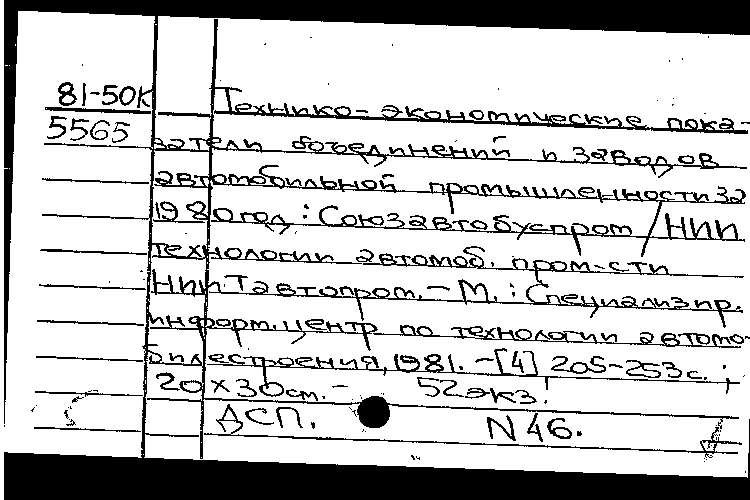 81-50К Технико-экономические пока-
5565 затели объединений и заводов
автомобильной промышленности за
1980 год : Союзавтобуспром / НИИ
технологии автомоб. пром-сти
НИИТавтопром. - М. : Специализир.
информ. центр по технологии автомо-
билестроения, 1981. - [4] 205-253 с. ;
20 х 30 см. - 52 экз.
ДСП. N 46.